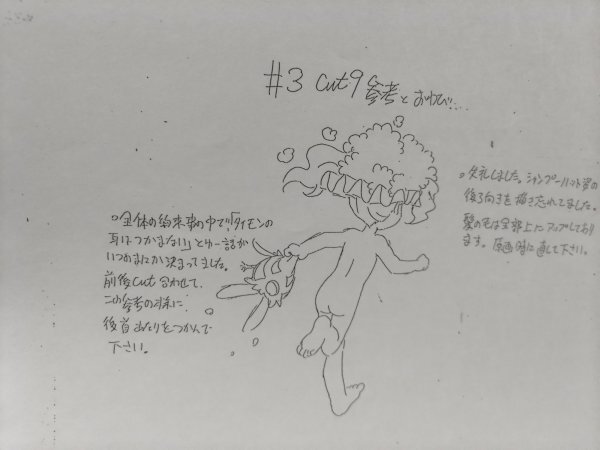 #3 cut9 参考とおわび…
。全体の約束事の中で「ダイモンの
耳はつかまない」とゆー話が
いつのまにか決まってました。
前後cut合わせて、
この参考の様に
後首あたりをつかんで
下さい。
。失礼しました。シャンプーハット姿の
後ろ向きを描き忘れてました。
髪の毛は全部上にアップしており
ます。原画時に直して下さい。